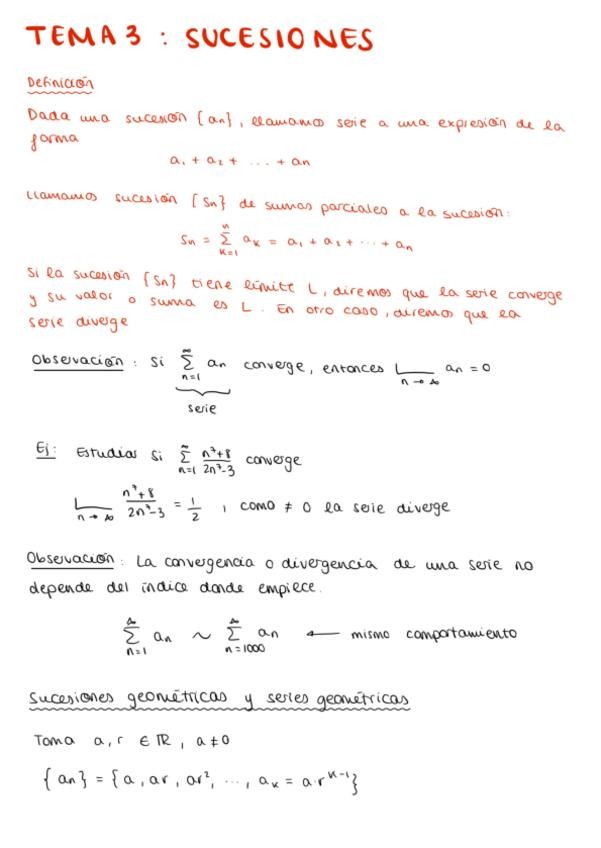 TEMA 3 : SUCESIONES
Definición
Dada una sucesión {an}, llamamos serie a una expresión de la
forma
a₁ + a₂ + ... + an
Llamamos sucesión {Sn} de sumas parciales a la sucesión:
Sn = Σ_{k=1}^{n} ak = a₁ + a₂ + ... + an
Si la sucesión {Sn} tiene límite L, diremos que la serie converge
y su valor o suma es L. En otro caso, diremos que la
serie diverge
Observación : Si Σ_{n=1}^{∞} an converge, entonces L_{n→∞} an = 0
serie
Ej: Estudias si Σ_{n=1}^{∞} (n⁷+8)/(2n⁷-3) converge
L_{n→∞} (n⁷+8)/(2n⁷-3) = 1/2 , como ≠ 0 la serie diverge
Observación : La convergencia o divergencia de una serie no
depende del índice donde empiece.
Σ_{n=1}^{∞} an ~ Σ_{n=1000}^{∞} an ← mismo comportamiento
Sucesiones geométricas y series geométricas
Toma a, r ∈ ℝ, a ≠ 0
{an} = {a, ar, ar², ..., ak = a·r^{k-1}}